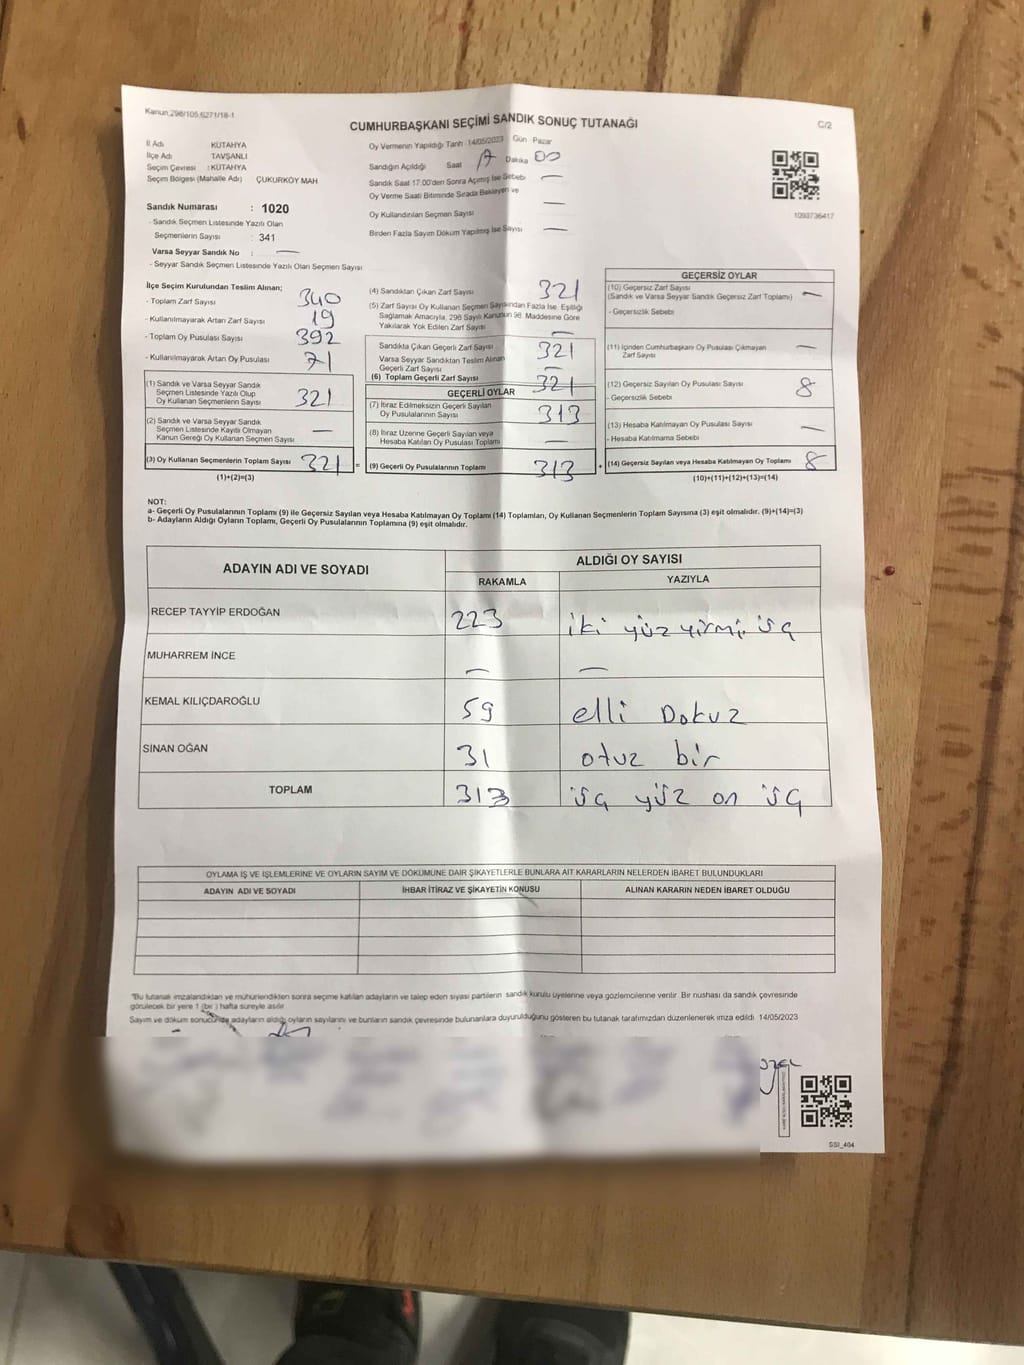 Kanun,298/105,6271/18-1
CUMHURBAŞKANI SEÇİMİ SANDIK SONUÇ TUTANAĞI
C/2
İl Adı KÜTAHYA
İlçe Adı TAVŞANLI
Seçim Çevresi : KÜTAHYA
Seçim Bölgesi (Mahalle Adı) ÇUKURKÖY MAH
Sandık Numarası : 1020
- Sandık Seçmen Listesinde Yazılı Olan
Seçmenlerin Sayısı : 341
Varsa Seyyar Sandık No : —
- Seyyar Sandık Seçmen Listesinde Yazılı Olan Seçmen Sayısı
Oy Vermenin Yapıldığı Tarih 14/05/2023 Gün Pazar
Sandığın Açıldığı Saat 17 Dakika 00
Sandık Saat 17:00'den Sonra Açılmış İse Sebebi —
Oy Verme Saati Bitiminde Sırada Bekleyen ve
Oy Kullandırılan Seçmen Sayısı —
Birden Fazla Sayım Döküm Yapılmış İse Sayısı —
1093736417
İlçe Seçim Kurulundan Teslim Alınan;
- Toplam Zarf Sayısı 340
- Kullanılmayarak Artan Zarf Sayısı 19
- Toplam Oy Pusulası Sayısı 392
- Kullanılmayarak Artan Oy Pusulası 71
(1) Sandık ve Varsa Seyyar Sandık
Seçmen Listesinde Yazılı Olup
Oy Kullanan Seçmenlerin Sayısı 321
(2) Sandık ve Varsa Seyyar Sandık
Seçmen Listesinde Kayıtlı Olmayan
Kanun Gereği Oy Kullanan Seçmen Sayısı —
(3) Oy Kullanan Seçmenlerin Toplam Sayısı 321 =
(1)+(2)=(3)
(4) Sandıktan Çıkan Zarf Sayısı 321
(5) Zarf Sayısı Oy Kullanan Seçmen Sayısından Fazla İse, Eşitliği
Sağlamak Amacıyla, 298 Sayılı Kanunun 98. Maddesine Göre
Yakılarak Yok Edilen Zarf Sayısı —
Sandıkta Çıkan Geçerli Zarf Sayısı 321
Varsa Seyyar Sandıktan Teslim Alınan
Geçerli Zarf Sayısı —
(6) Toplam Geçerli Zarf Sayısı 321
GEÇERLİ OYLAR
(7) İtiraz Edilmeksizin Geçerli Sayılan
Oy Pusulalarının Sayısı 313
(8) İtiraz Üzerine Geçerli Sayılan veya
Hesaba Katılan Oy Pusulası Toplamı —
(9) Geçerli Oy Pusulalarının Toplamı 313 +
GEÇERSİZ OYLAR
(10) Geçersiz Zarf Sayısı —
(Sandık ve Varsa Seyyar Sandık Geçersiz Zarf Toplamı)
- Geçersizlik Sebebi
(11) İçinden Cumhurbaşkanı Oy Pusulası Çıkmayan
Zarf Sayısı —
(12) Geçersiz Sayılan Oy Pusulası Sayısı 8
- Geçersizlik Sebebi
(13) Hesaba Katılmayan Oy Pusulası Sayısı —
- Hesaba Katılmama Sebebi
(14) Geçersiz Sayılan veya Hesaba Katılmayan Oy Toplamı 8
(10)+(11)+(12)+(13)=(14)
NOT:
a- Geçerli Oy Pusulalarının Toplamı (9) ile Geçersiz Sayılan veya Hesaba Katılmayan Oy Toplamı (14) Toplamları, Oy Kullanan Seçmenlerin Toplam Sayısına (3) eşit olmalıdır. (9)+(14)=(3)
b- Adayların Aldığı Oyların Toplamı, Geçerli Oy Pusulalarının Toplamına (9) eşit olmalıdır.
ADAYIN ADI VE SOYADI
ALDIĞI OY SAYISI
RAKAMLA YAZIYLA
RECEP TAYYİP ERDOĞAN 223 iki yüz yirmi üç
MUHARREM İNCE — —
KEMAL KILIÇDAROĞLU 59 elli Dokuz
SİNAN OĞAN 31 otuz bir
TOPLAM 313 üç yüz on üç
OYLAMA İŞ VE İŞLEMLERİNE VE OYLARIN SAYIM VE DÖKÜMÜNE DAİR ŞİKAYETLERLE BUNLARA AİT KARARLARIN NELERDEN İBARET BULUNDUKLARI
ADAYIN ADI VE SOYADI İHBAR İTİRAZ VE ŞİKAYETİN KONUSU ALINAN KARARIN NEDEN İBARET OLDUĞU
"Bu tutanak imzalandıktan ve mühürlendikten sonra seçime katılan adayların ve talep eden siyasi partilerin sandık kurulu üyelerine veya gözlemcilerine verilir. Bir nushası da sandık çevresinde
görülecek bir yere 1 (bir) hafta süreyle asılır.
Sayım ve döküm sonucunda adayların aldığı oyların sayılarını ve bunların sandık çevresinde bulunanlara duyurulduğunu gösteren bu tutanak tarafımızdan düzenlenerek imza edildi 14/05/2023
SSİ_404